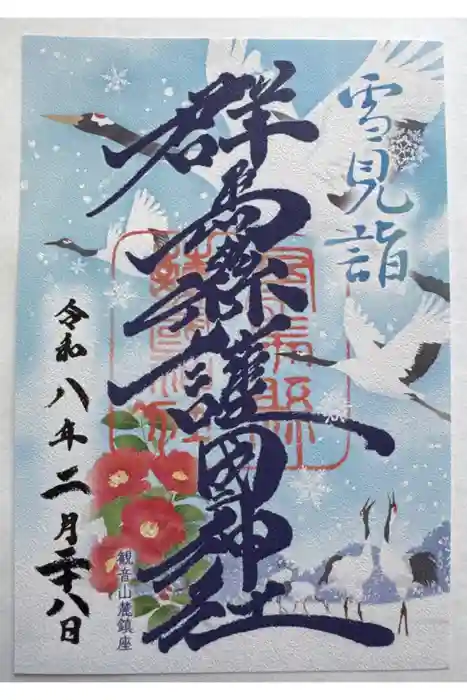 雪見詣
群馬縣護國神社
令和八年二月二十八日
観音山麓鎮座